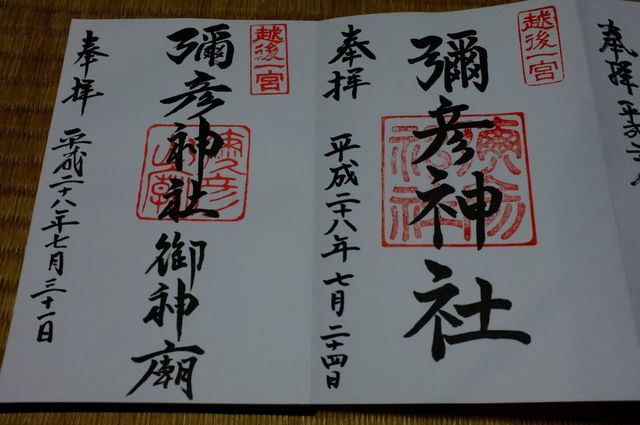 奉拝 平成
越後一宮
彌彦神社
奉拝 平成二十八年 七月 二十四日
越後一宮
彌彦神社御神廟
奉拝 平成二十八年七月三十一日